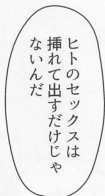 ヒトのセックスは
挿れて出すだけじゃ
ないんだ